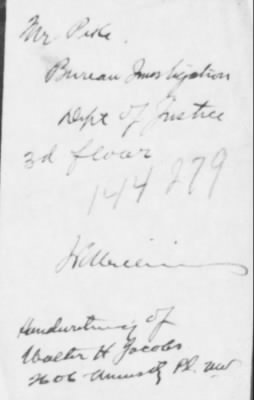 Mr Pike.
Bureau Investigation
Dept of Justice
3d floor
144 279
Handwriting of
Walter H Jacobs
2606 University Pl. NW